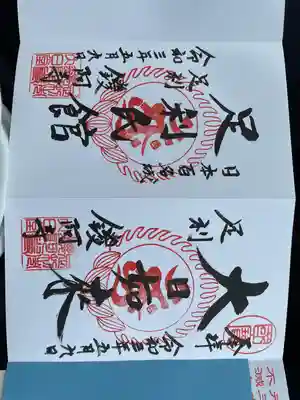 奉拝
令和三年五月九日
大日如来
足利
鑁阿寺
日本百名城
足利氏館
足利
鑁阿寺
令和三年五月九日